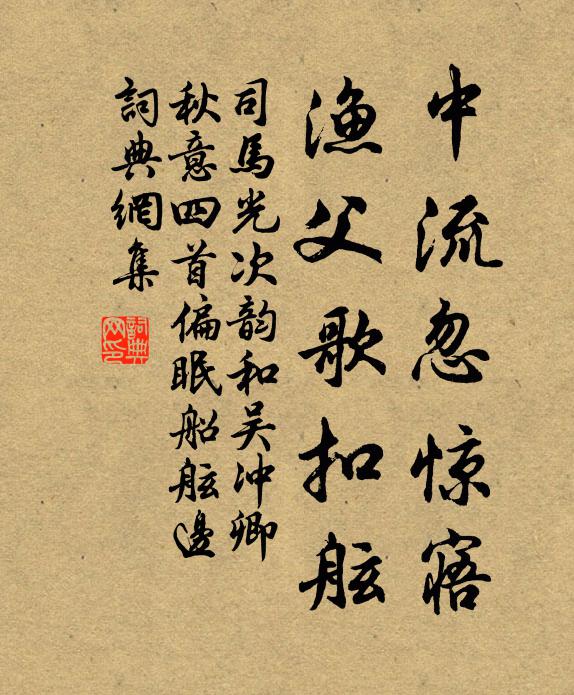 中流忽惊寤
渔父歌扣舷
司馬光次韵和吴冲卿
秋意四首偏眠船舷邊
詞典網集
詞典网印